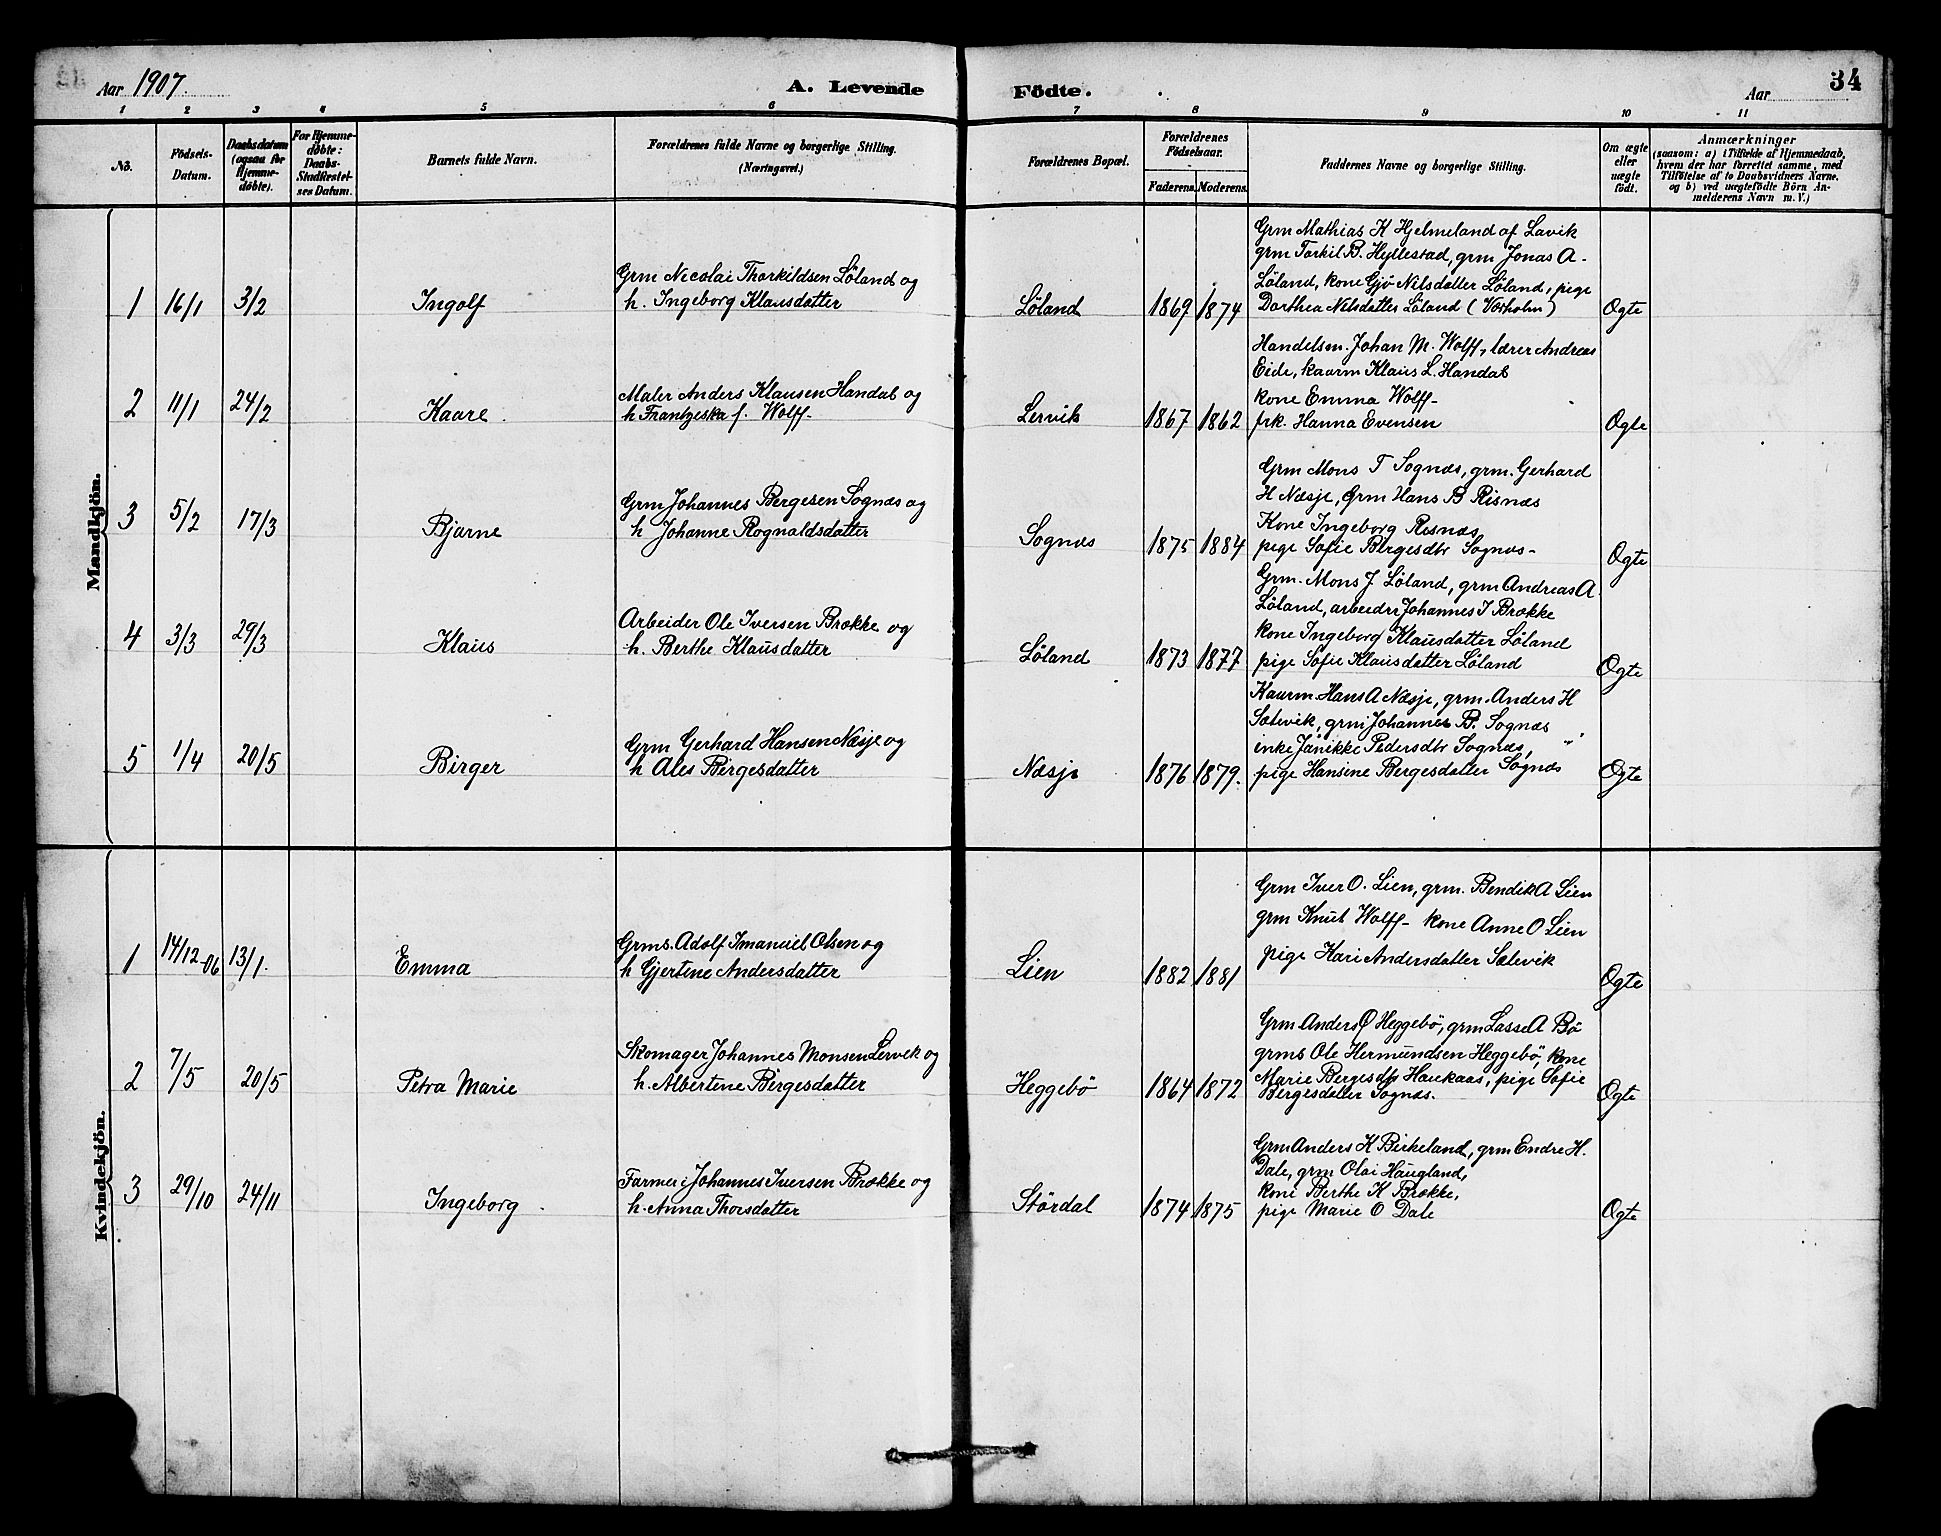 Aar 1907.
A. Levende Födte.
Aar
34
1 2 3 4 5 6 7 8 9 10 11
No.
Födsels-Datum.
Daabsdatum (ogsaa for Hjemme-döbte).
For Hjemme-döbte: Daabs-Stadfæstel-ses Datum.
Barnets fulde Navn.
Forældrenes fulde Navne og borgerlige Stilling. (Næringsvei.)
Forældrenes Bopæl.
Forældrenes Födselsaar.
Faderens. Moderens.
Faddernes Navne og borgerlige Stilling.
Om ægte eller uægte födt.
Anmærkninger
(saasom: a) i Tilfælde af Hjemmedaab,
hvem der har forrettet samme, med
Tilföielse af to Daabsvidners Navne,
og b) ved uægtefödte Börn An-
melderens Navn m. V.)
Mandkjön.
1 16/1 3/2 Ingolf
Grm Nicolai Thorkildsen Löland og
h. Ingeborg Klausdatter
Löland 1869 1874
Grm Mathias K Hjelmeland af Lavik
grm Torkil B. Hyllestad, grm Jonas A-
Löland, kone Gjö Nilsdatter Löland, pige
Dorthea Nilsdatter Löland (Vörholm)
Ogte
2 11/1 24/2 Kaare.
Maler Anders Klausen Handal og
h Frantzeska f. Wolff-
Lervik 1867 1862
Handelsm. Johan M. Wolff, lærer Andreas
Eide, kaarm Klaus L. Handal
kone Emma Wolff-
frk. Hanna Evensen
Ogte
3 5/2 17/3 Bjarne
Grm Johannes Bergesen Sognæs og
h Johanne Rognaldsdatter
Sognæs 1875 1884
Grm Mons T Sognæs, grm. Gerhard
H Næsje, Grm Hans B Risnæs
Kone Ingeborg Risnæs,
pige Sofie Birgesdtr Sognæs-
Ogte
4 3/3 29/3 Klaus
Arbeider Ole Iversen Brække og
h. Berthe Klausdatter
Löland 1873 1877
Grm. Mons J. Löland, grm Andreas A
Löland, arbeider Johannes I Brække
kone Ingeborg Klausdatter Löland
pige Sofie Klausdatter Löland
Ogte
5 1/4 20/5 Birger
Grm Gerhard Hansen Næsje og
h Ales Birgesdatter
Næsje 1876 1879.
Kaarm. Hans A Næsje, grm. Anders H
Sætevik, grm Johannes B. Sognæs
enke Janikke Pedersdtr Sognæs,
pige Hansine Bergesdatter Sognæs
Ogte
Kvindekjön.
1 14/12-06 13/1. Emma
Grms. Adolf Imanuel Olsen og
h Gjertine Andersdatter
Lien 1882 1881
Grm Iver O. Lien, grm. Bendik A Lien
grm Knut Wolff- kone Anne O Lien
pige Kari Andersdatter Sætevik
Ogte
2 7/5 20/5 Petra Marie
Skomager Johannes Monsen Lervik og
h. Albertine Birgesdatter
Heggebö 1864 1872
Grm Anders O Heggebö, grm Lasse A Bö
grms Ole Hermundsen Heggebö, kone
Marie Bergesdtr Haukaas, pige Sofie
Bergesdatter Sognæs.
Ogte
3 29/10 24/11 Ingeborg.
Farmer i Johannes Iversen Brække og
h. Anna Thorsdatter
Stördal 1874 1875
Grm Anders K Birkeland, grm Endre H.
Dale, grm Olai Haugland,
kone Berthe K Brække,
pige Marie O Dale
Ogte